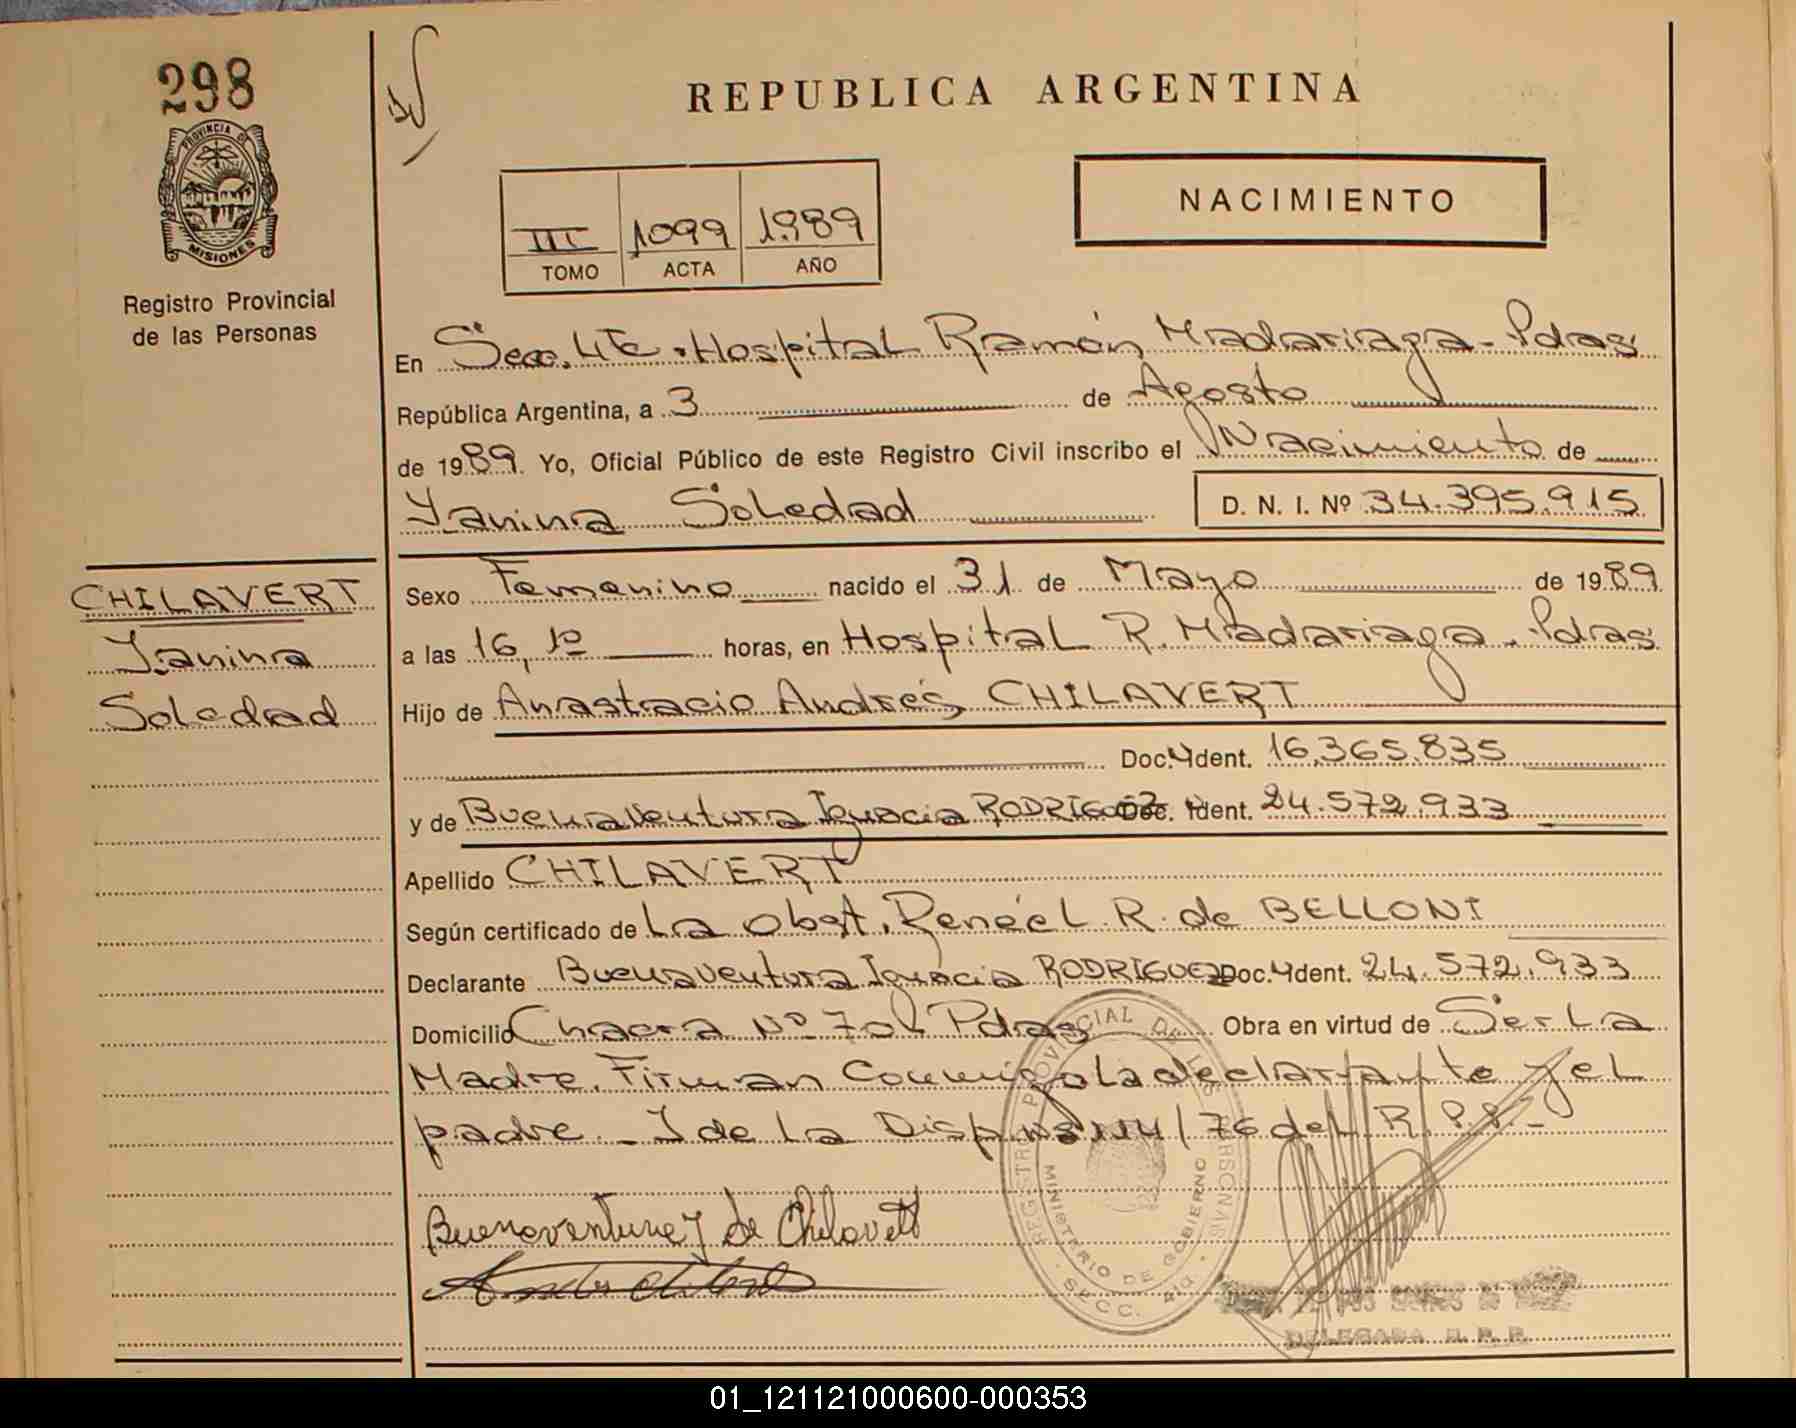 298
REPUBLICA ARGENTINA
PROVINCIA DE
MISIONES
NACIMIENTO
III 1099 1989
TOMO ACTA AÑO
Registro Provincial
de las Personas
En Secc. 4ta. Hospital Ramón Madariaga - Pdas
República Argentina, a 3 de Agosto
de 1989. Yo, Oficial Público de este Registro Civil inscribo el Nacimiento de
Yanina Soledad D. N. I. Nº 34.395.915
CHILAVERT
Yanina
Soledad
Sexo Femenino nacido el 31 de Mayo de 1989
a las 16,10 horas, en Hospital R. Madariaga - Pdas
Hijo de Anastacio Andrés CHILAVERT
Doc. Ident. 16.365.835
y de Buenaventura Ignacia RODRIGUEZ Doc. Ident. 24.572.933
Apellido CHILAVERT
Según certificado de La Obst. Reneé L. R. de BELLONI
Declarante Buenaventura Ignacia RODRIGUEZ Doc. Ident. 24.572.933
Domicilio Chacra Nº 70 Pdas Obra en virtud de Ser La
Madre. Firman Conmigo la declarante y el
padre. - Y de La Disp. 114/76 del R.P.P.-
Buenaventura J de Chilavert
REGISTRO PROVINCIAL DE LAS PERSONAS
MINISTERIO DE GOBIERNO
SECC. 4ta
DELEGADA R. P. P.
01_121121000600-000353